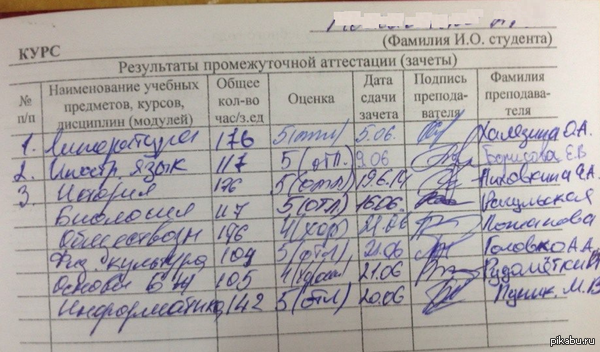 КУРС
(Фамилия И.О. студента)
Результаты промежуточной аттестации (зачеты)
№ п/п Наименование учебных предметов, курсов, дисциплин (модулей) Общее кол-во час/з.ед Оценка Дата сдачи зачета Подпись препода-вателя Фамилия препода-вателя
1. Литература 176 5(отл) 5.06.
2. Иностр. язык 117 5(отл.) 9.06 Борисова Е.В
3. История 176 5(отл) 19.6.14
Биология 117 5(отл) 16.06
Обществозн 196 4(хор) 21.06
Физ. культура 104 5(отл) 21.06 Головко А.А.
Основы БЖ 105 4(хор) 21.06
Информатика 142 5(отл) 20.06
pikabu.ru